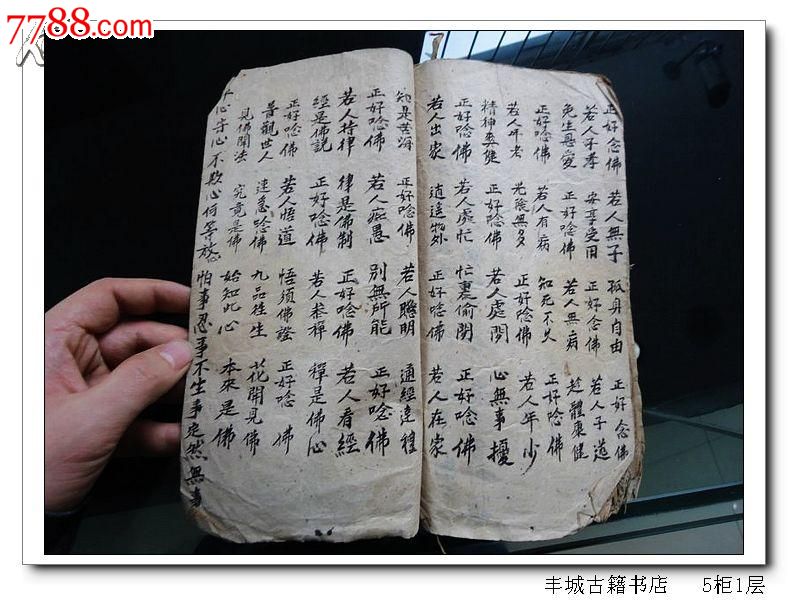 7788.com
正好念佛 若人無子 孤身自由 正好念佛
若人子孝 安享受用 正好念佛 若人子逆
免生恩愛 正好唸佛 若人無病 趁體康健
正好唸佛 若人有病 知死不久 正好唸佛
若人年老 光陰無多 正好唸佛 若人年少
精神爽健 正好唸佛 若人處閑 心無事擾
正好唸佛 若人處忙 忙裏偷閑 正好唸佛
若人出家 逍遥物外 正好唸佛 若人在家
知是苦海 正好唸佛 若人聰明 通經達理
正好唸佛 若人痴愚 別無所能 正好唸佛
若人持律 律是佛制 正好唸佛 若人看經
經是佛説 正好唸佛 若人参禪 禪是佛心
正好唸佛 若人悟道 悟須佛證 正好唸佛
普觀世人 速急唸佛 九品往生 花開見佛
見佛聞法 究竟是佛 始知此心 本來是佛
心守心不欺心何等放心 怕事忍事不生事定然無事
丰城古籍书店 5柜1层